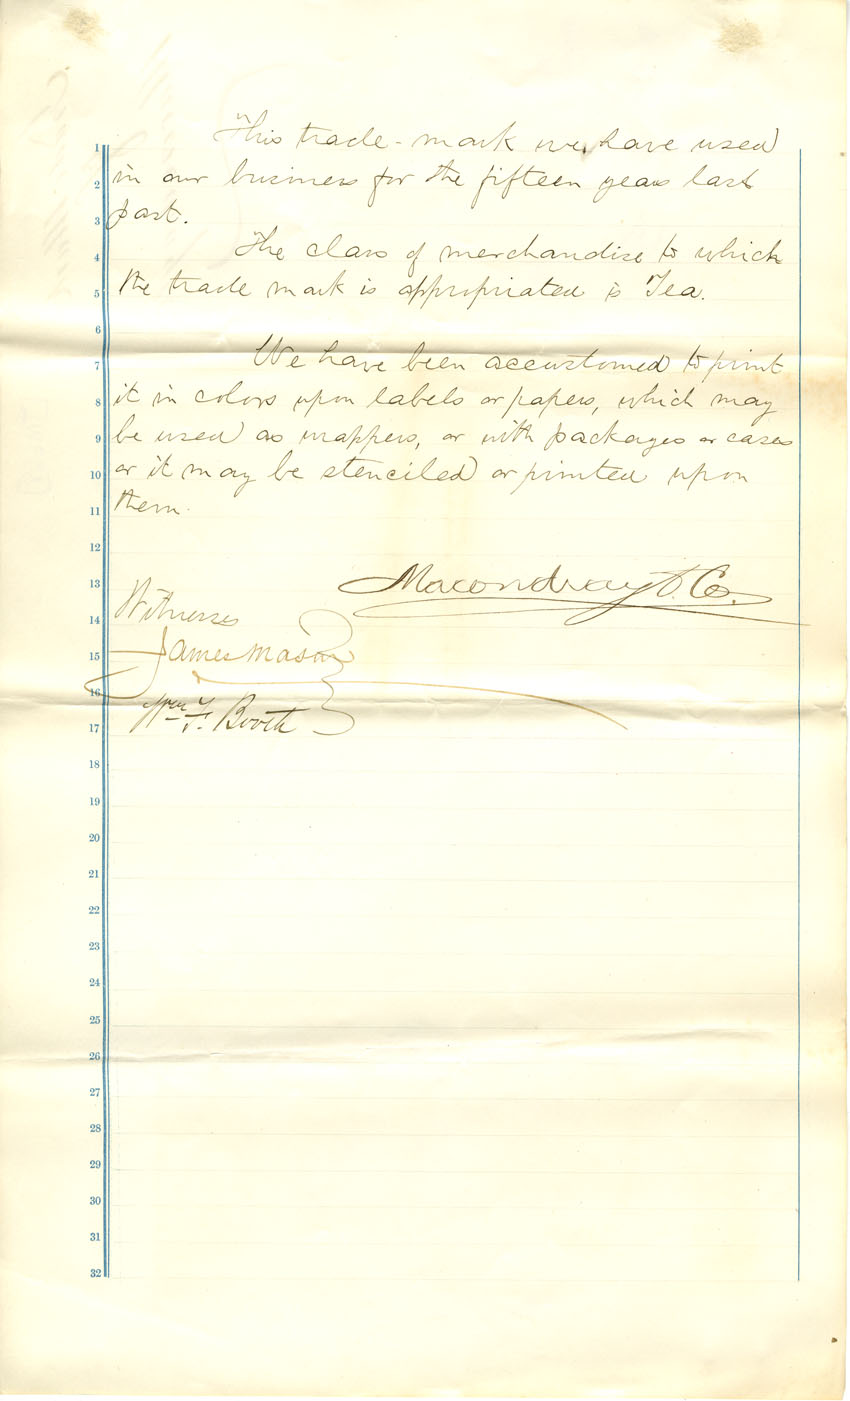 1 This trade-mark we have used
2 in our business for the fifteen years last
3 past.
4 The class of merchandise to which
5 the trade mark is appropriated is Tea.
6
7 We have been accustomed to print
8 it in colors upon labels or papers, which may
9 be used as wrappers, or with packages or cases
10 or it may be stenciled or printed upon
11 them.
12
13 Macondray & Co.
14 Witnesses
15 James Mason
16
17 Wm. F. Booth
18
19
20
21
22
23
24
25
26
27
28
29
30
31
32